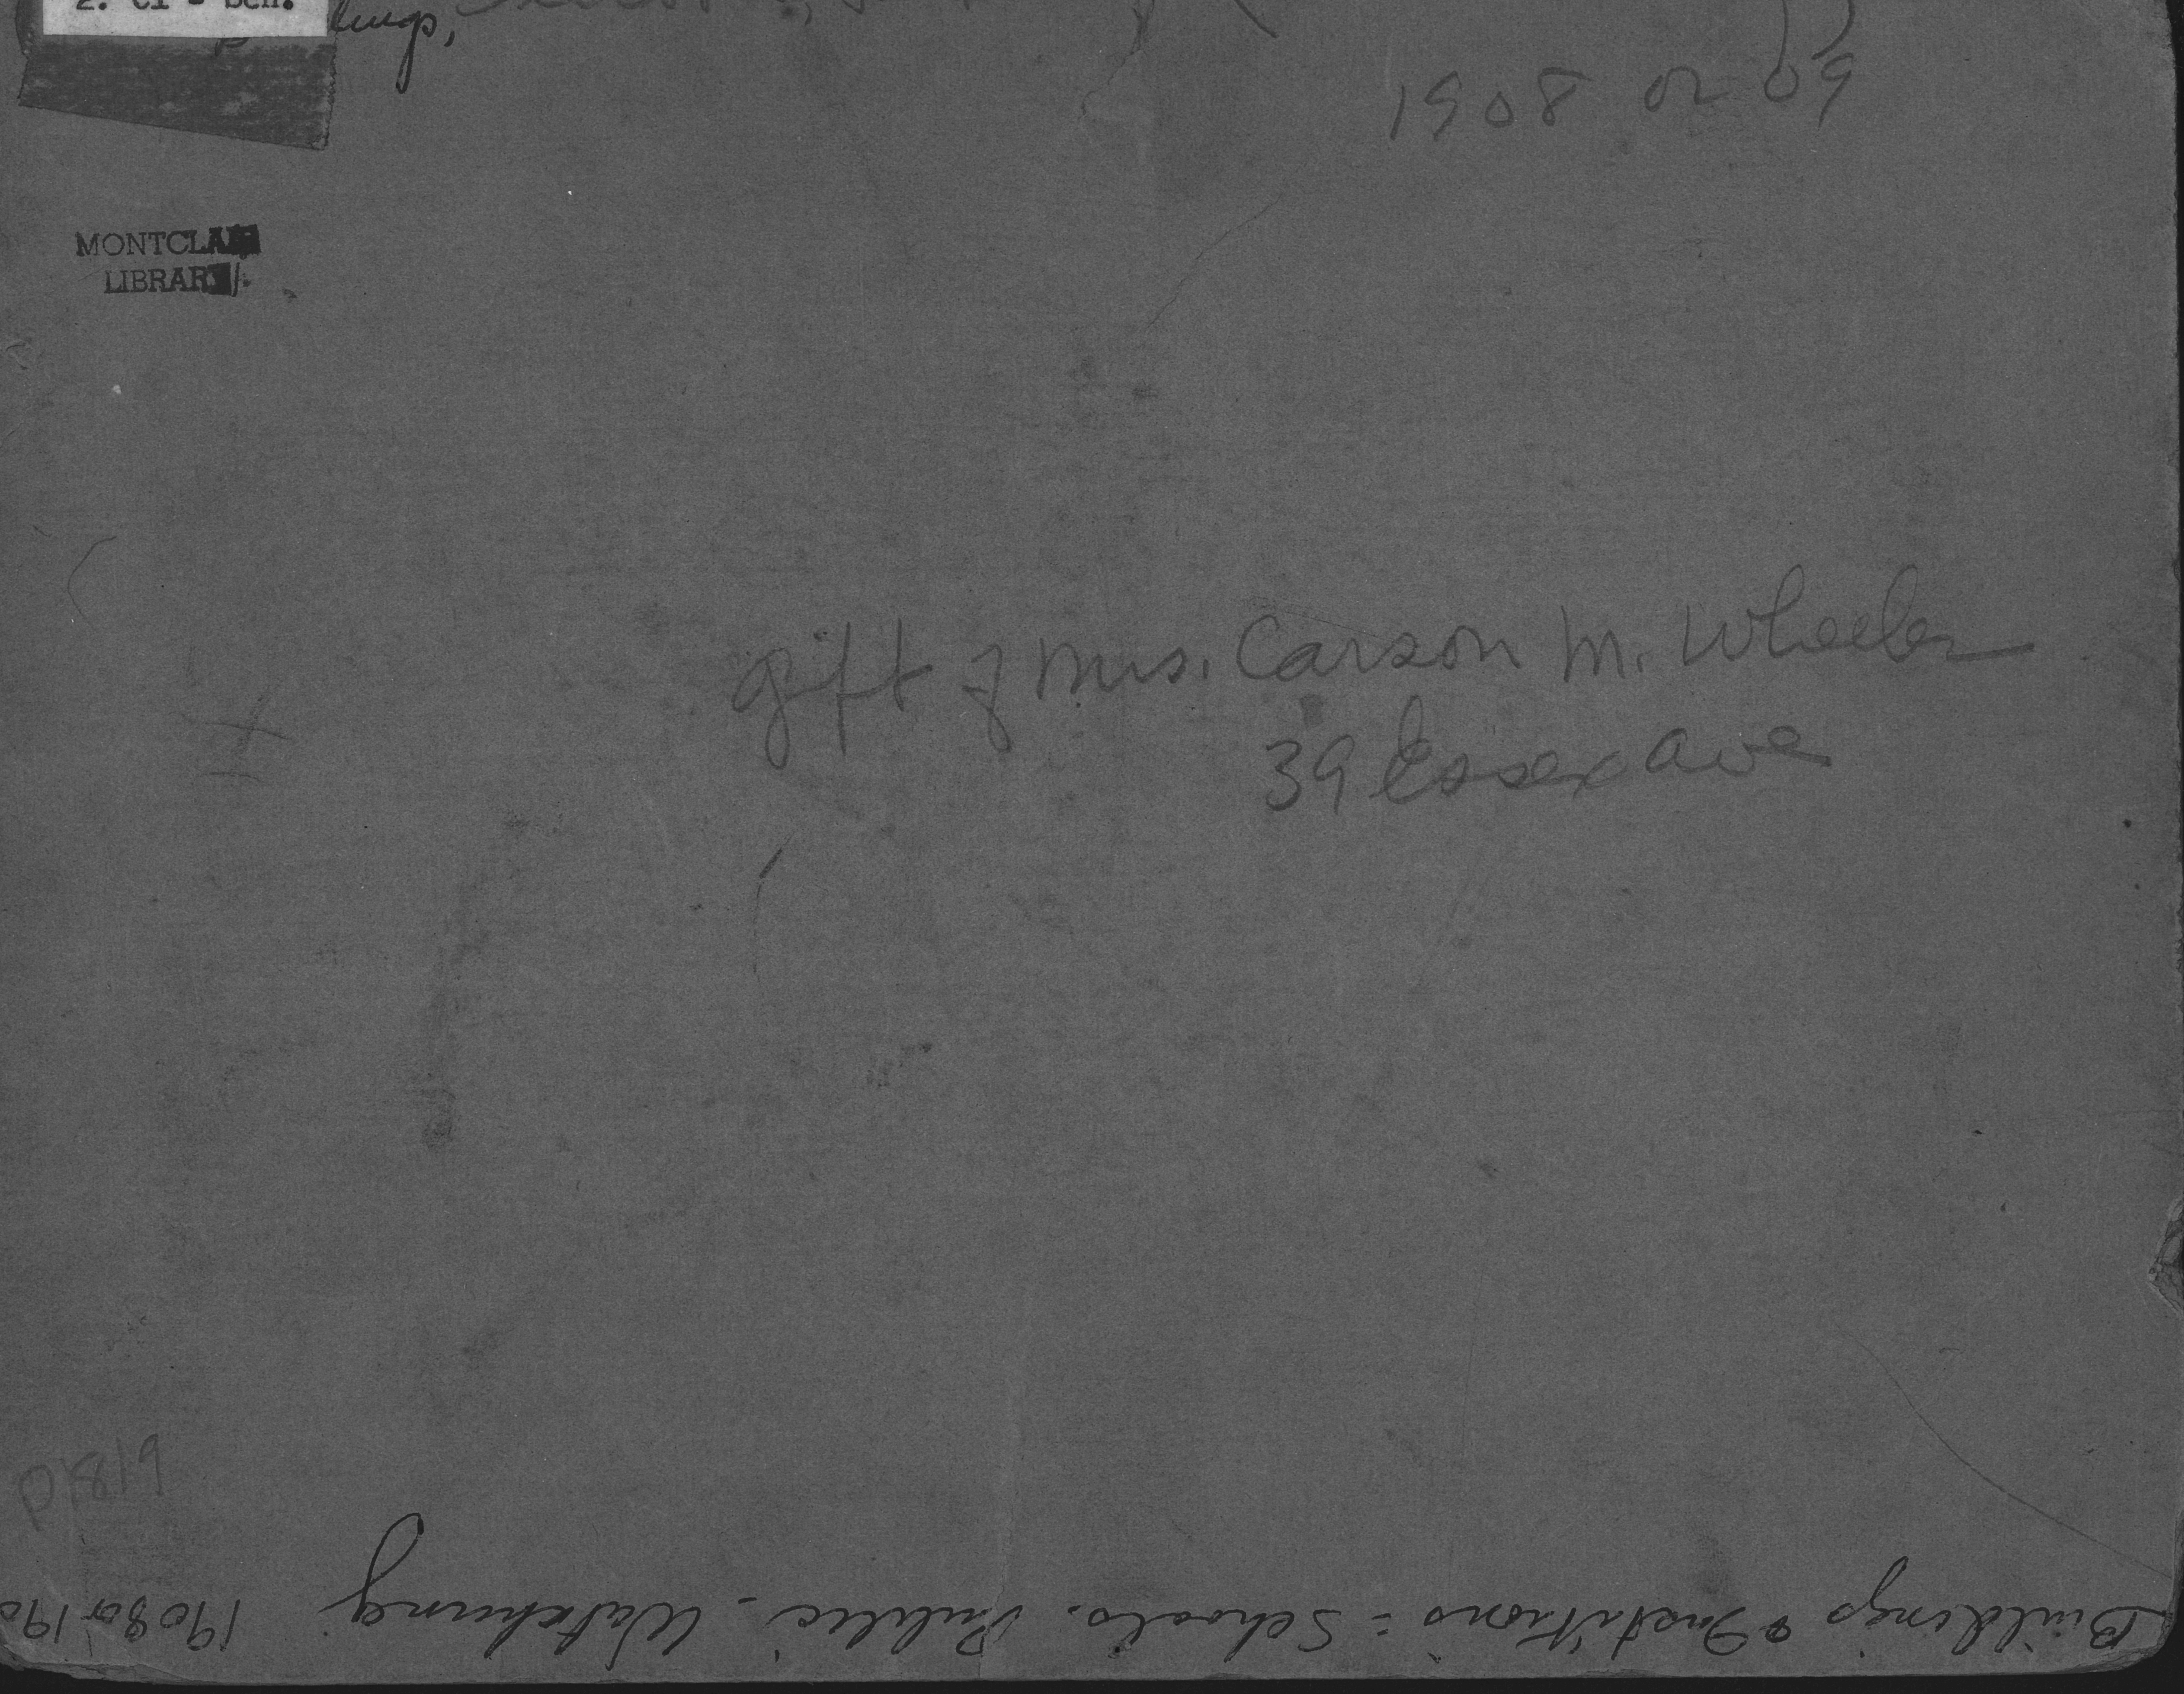 2. Cl - Sch.
1908 or 09
MONTCLA
LIBRARY
gift of Mrs. Carson M. Wheeler
39 Essex Ave
P1819
Buildings & Institutions = Schools. Public - Watchung 1908 or 190